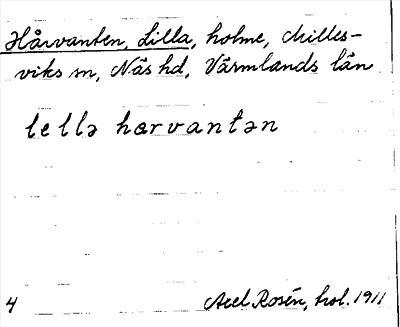 Hårvanten, Lilla, holme, Milles-
viks sn, Näs hd, Värmlands län
lellə harvantən
4
Axel Rosén, kol. 1911